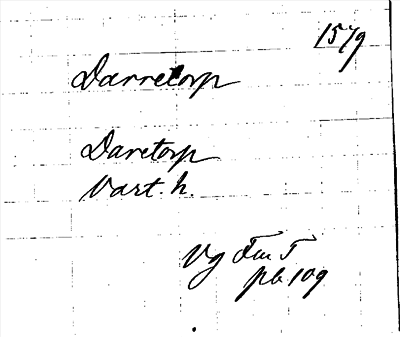 1579
Darretorp
Daretorp
Vart. h.
Vg Fm 5
pb 109